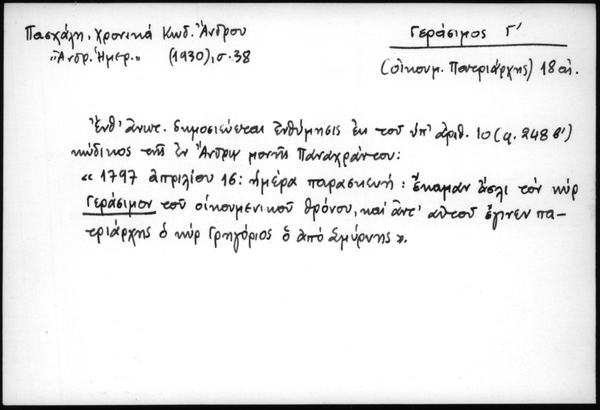 Πασχάλη, χρονικά Κωδ. Ἄνδρου
"Ἀνδρ. Ἡμερ." (1930), σ. 38
Γεράσιμος Γ'
(οἰκουμ. Πατριάρχης) 18 αἰ.
Ἐνθ' ἀνωτ. δημοσιεύεται ἐνθύμησις ἐκ τοῦ ὑπ' ἀριθ. 10 (φ. 248 β')
κώδικος τῆς ἐν Ἄνδρῳ μονῆς Παναχράντου:
« 1797 ἀπριλίου 16: ἡμέρα παρασκευή: ἔκαμαν ἄσλι τὸν κύρ
Γεράσιμον τοῦ οἰκουμενικοῦ θρόνου, καί ἀντ' αὐτοῦ ἔγινεν πα-
τριάρχης ὁ κύρ Γρηγόριος ὁ ἀπό Σμύρνης ».